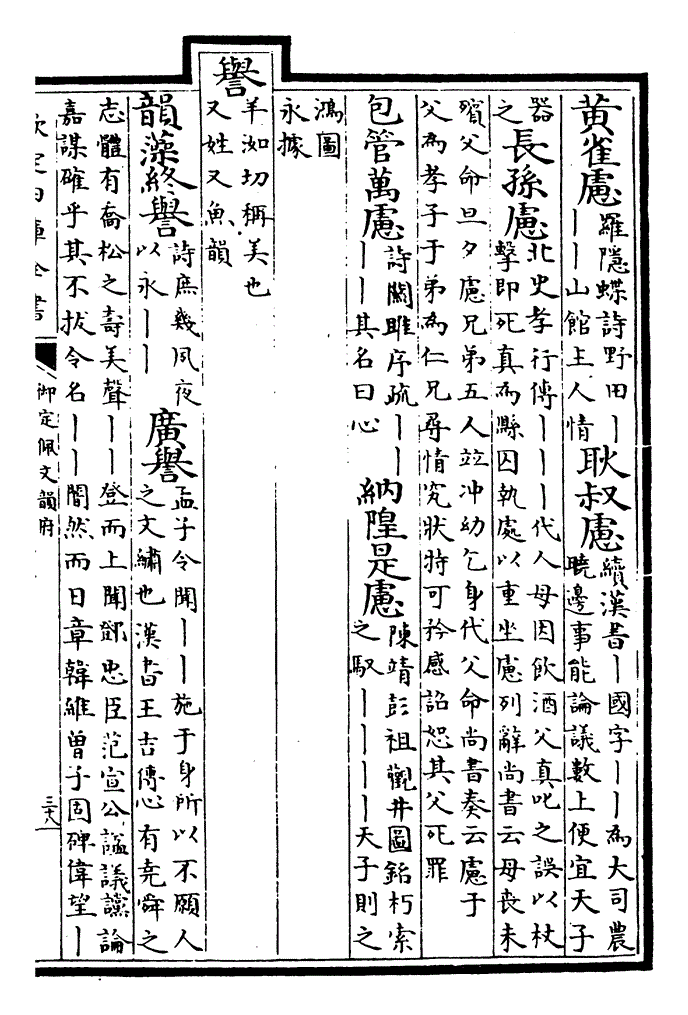 黄雀慮羅隱蝶詩野田丨
丨丨山館主人情
耿叔慮續漢書丨國字丨丨為大司農
曉邊事能論議數上便宜天子
器
之
長孫慮北史孝行傳丨丨丨代人母因飲酒父真叱之誤以杖
擊即死真為縣囚執處以重坐慮列辭尚書云母喪未
殯父命旦夕慮兄弟五人竝冲幼乞身代父命尚書奏云慮于
父為孝子于弟為仁兄尋情究狀特可矜感詔恕其父死罪
包管萬慮詩關雎序疏丨丨
丨丨其名曰心
納隍是慮陳靖彭祖觀井圖銘朽索
之馭丨丨丨丨天子則之
鴻圖
永據
譽
羊洳切稱美也
又姓又魚韻
韻藻終譽詩庶幾夙夜
以永丨丨
廣譽孟子令聞丨丨施于身所以不願人
之文繡也漢書王吉傳心有堯舜之
志體有喬松之壽美聲丨丨登而上聞鄧忠臣范宣公諡議讜論
嘉謀確乎其不拔令名丨丨闇然而日章韓維曾子固碑偉望丨
欽定四庫全書
御定佩文韻府
三十八